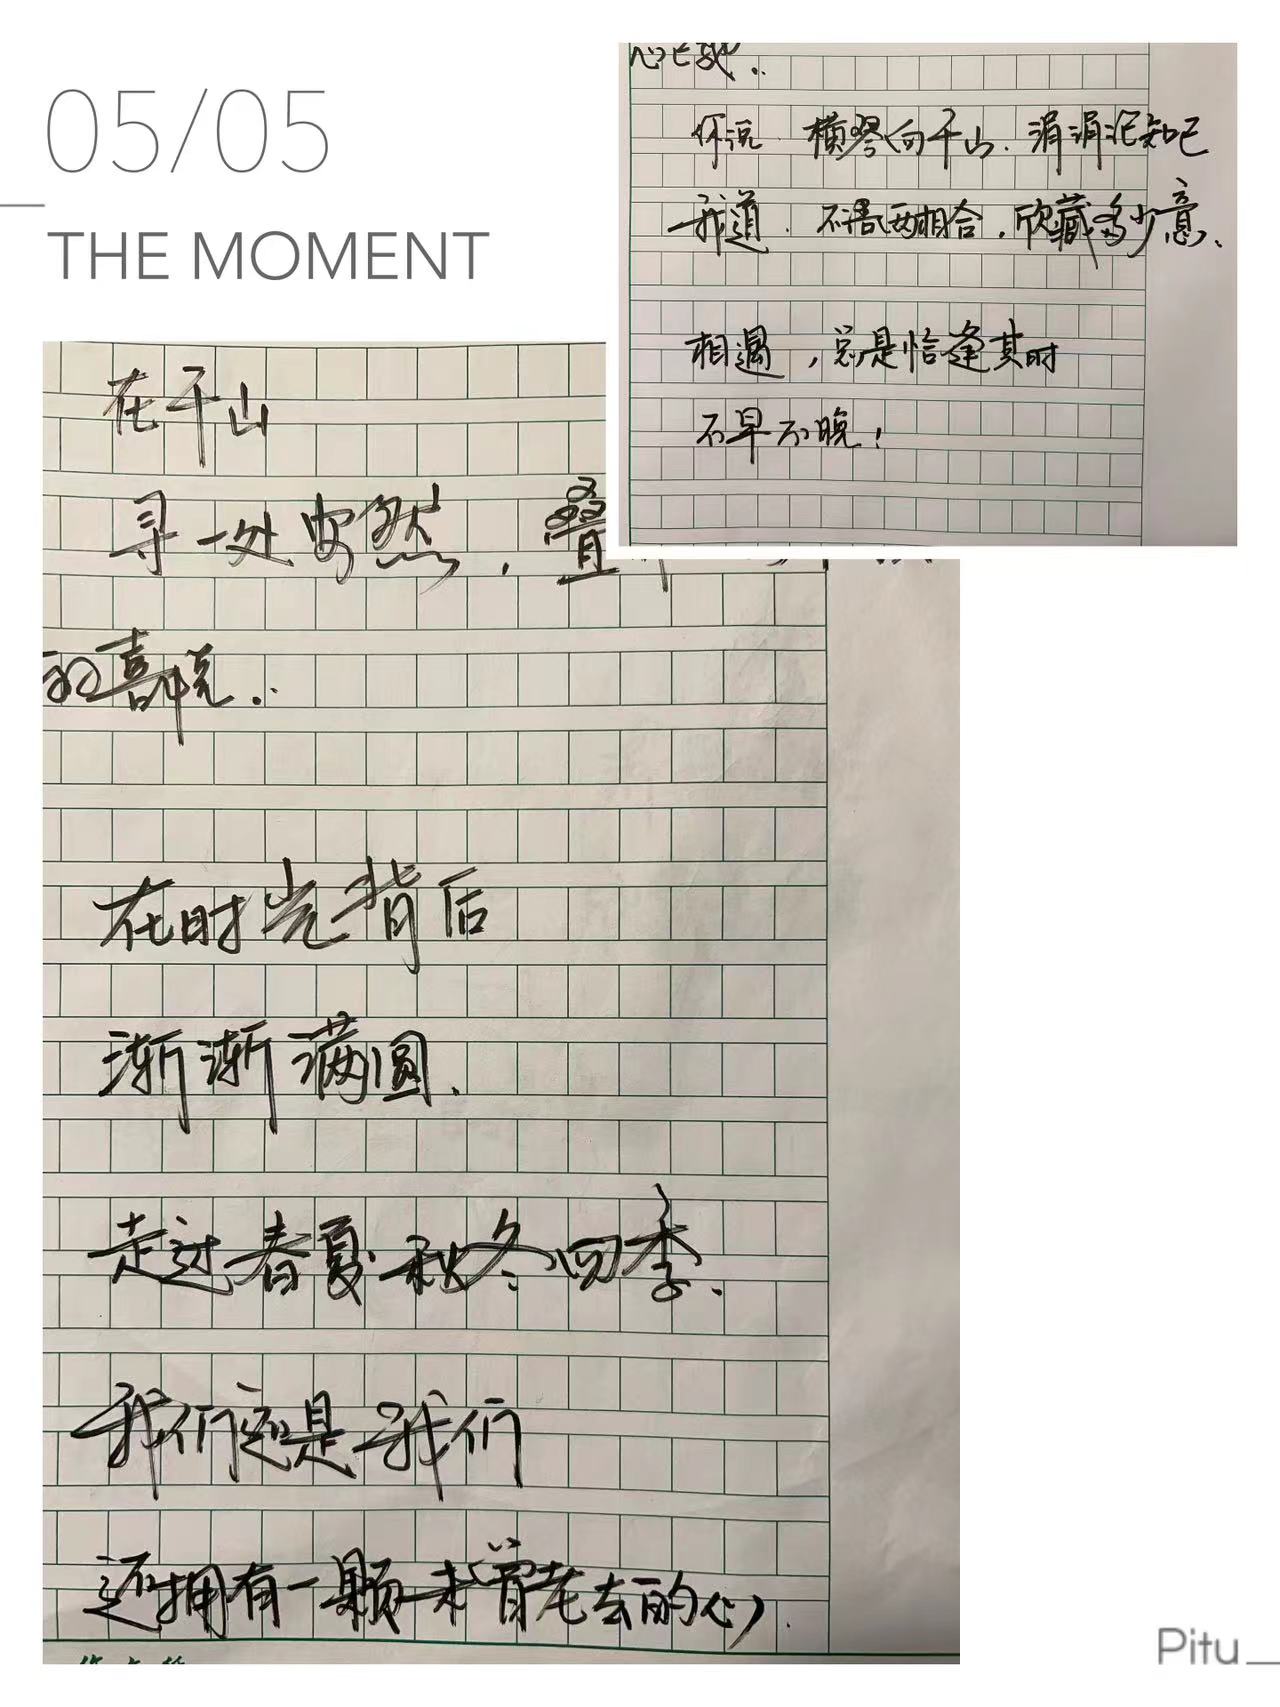 05/05
THE MOMENT
你说 横琴向千山.涓涓汇知己
我道.不言两相合,欣藏多少意、
相遇,总是恰逢其时
不早不晚!
在千山
寻一处安然,叠
的喜悦..
在时光背后
渐渐满圆.
走过春夏秋冬四季.
我们还是我们
还拥有一颗未曾老去的心.
Pitu